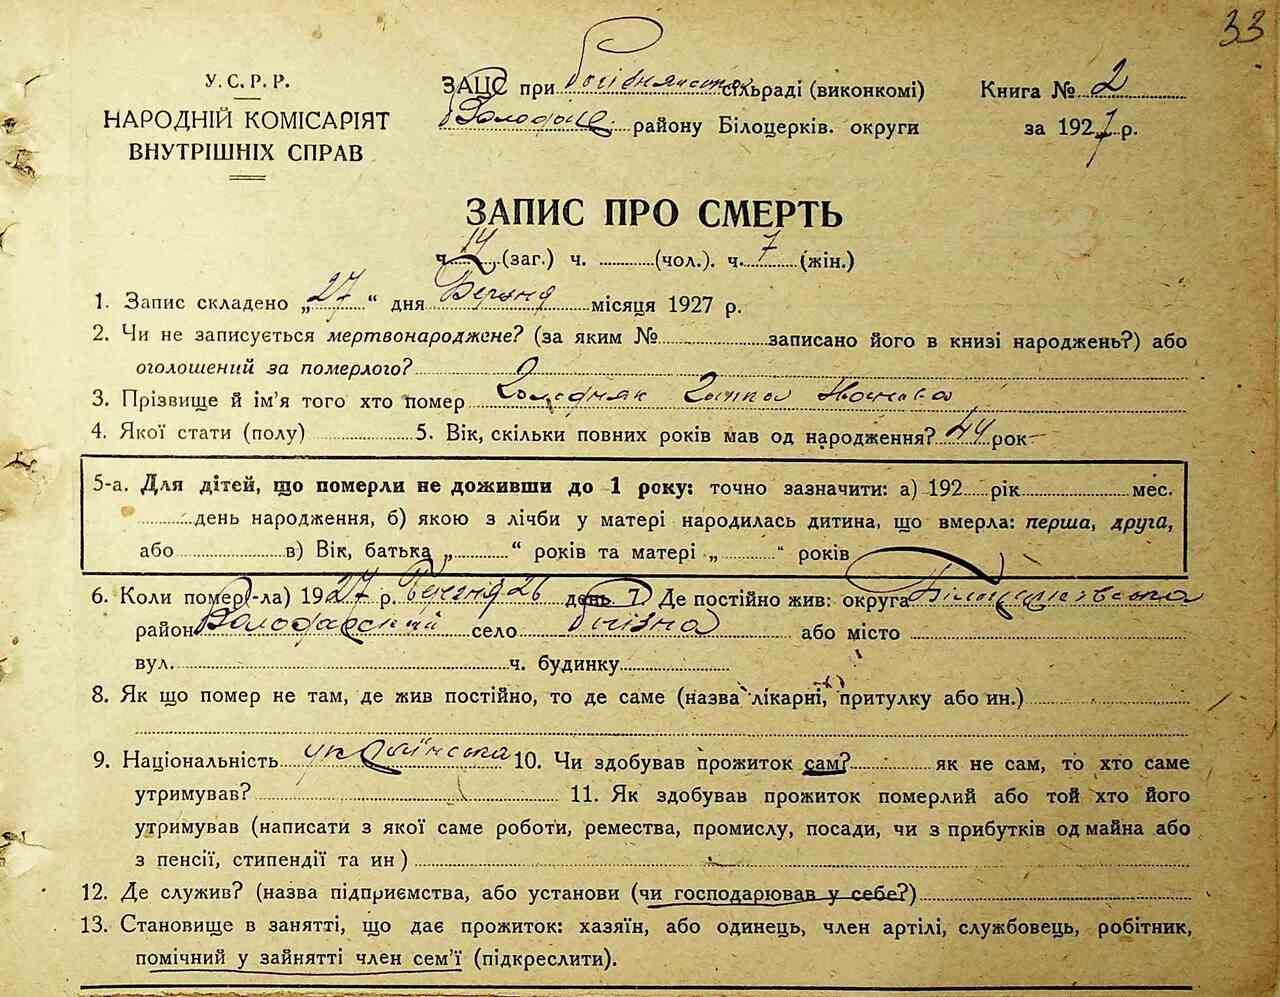 33
У.С.Р.Р.
НАРОДНІЙ КОМІСАРІЯТ
ВНУТРІШНІХ СПРАВ
ЗАЦС при сільраді (виконкомі) Книга № 2
Володарс. району Білоцерків. округи за 1927 р.
ЗАПИС ПРО СМЕРТЬ
ч. 14 (заг.) ч. (чол.). ч. 7 (жін.)
1. Запис складено „27“ дня Березня місяця 1927 р.
2. Чи не записується мертвонароджене? (за яким № записано його в книзі народжень?) або
оголошений за померлого?
3. Прізвище й ім'я того хто помер
4. Якої стати (полу) 5. Вік, скільки повних років мав од народження? 44 рок
5-а. Для дітей, що померли не доживши до 1 року: точно зазначити: а) 192 рік мес.
день народження, б) якою з лічби у матері народилась дитина, що вмерла: перша, друга,
або в) Вік, батька „ “ років та матері „ “ років
6. Коли помер(-ла) 1927 р. березня 26 день 7. Де постійно жив: округа Білоцерківська
район Володарський село або місто
вул. ч. будинку
8. Як що помер не там, де жив постійно, то де саме (назва лікарні, притулку або ин.)
9. Національність українська 10. Чи здобував прожиток сам? як не сам, то хто саме
утримував? 11. Як здобував прожиток померлий або той хто його
утримував (написати з якої саме роботи, ремества, промислу, посади, чи з прибутків од майна або
з пенсії, стипендії та ин)
12. Де служив? (назва підприємства, або установи (чи господарював у себе?)
13. Становище в занятті, що дає прожиток: хазяїн, або одинець, член артілі, службовець, робітник,
помічний у зайнятті член сем'ї (підкреслити).